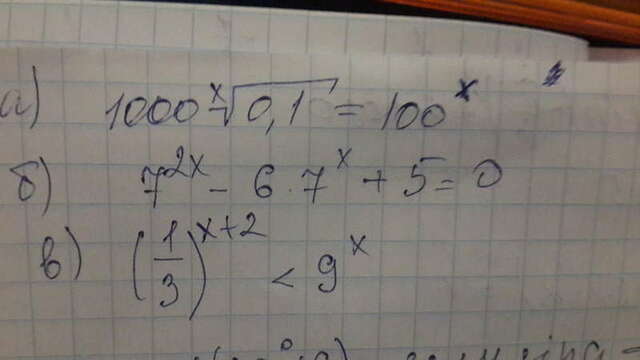 а) 1000 ˣ√0,1 = 100ˣ
б) 7²ˣ - 6 · 7ˣ + 5 = 0
в) (1/3)ˣ⁺² < 9ˣ